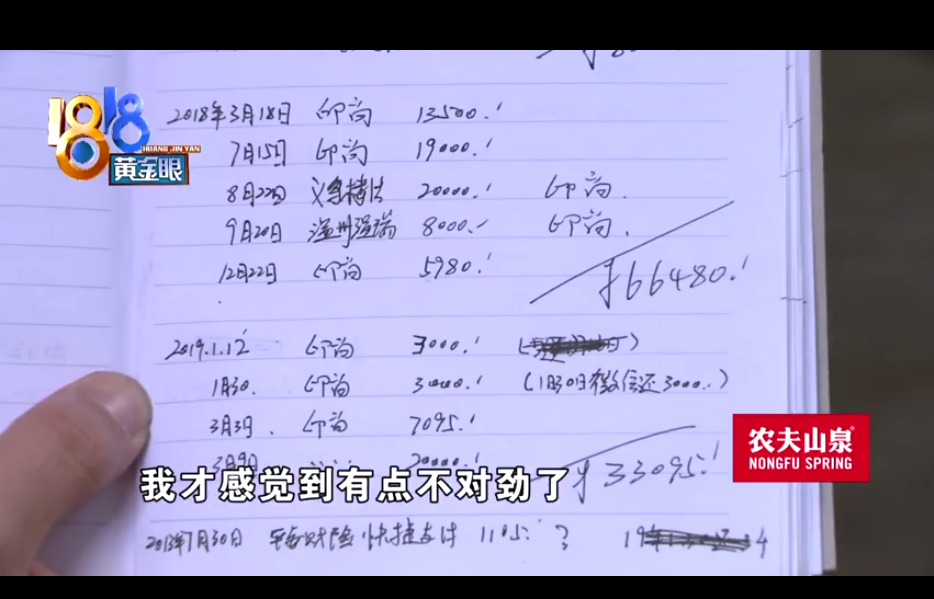 1818
HUANG JIN YAN
黄金眼
2018年3月18日 印尚 13500.
7月15日 印尚 19000.
8月22日 20000. 印尚.
9月20日 温州温瑞 8000. 印尚.
12月22日 印尚 5980.
66480.
2019.1.12 印尚 3000.
1月30. 印尚 3000. (1月30日微信还3000.)
3月3日. 印尚 7095.
3月9日 20000. 33095.
农夫山泉
NONGFU SPRING
我才感觉到有点不对劲了
7月30日 平安财险 快捷支付 1105 ?